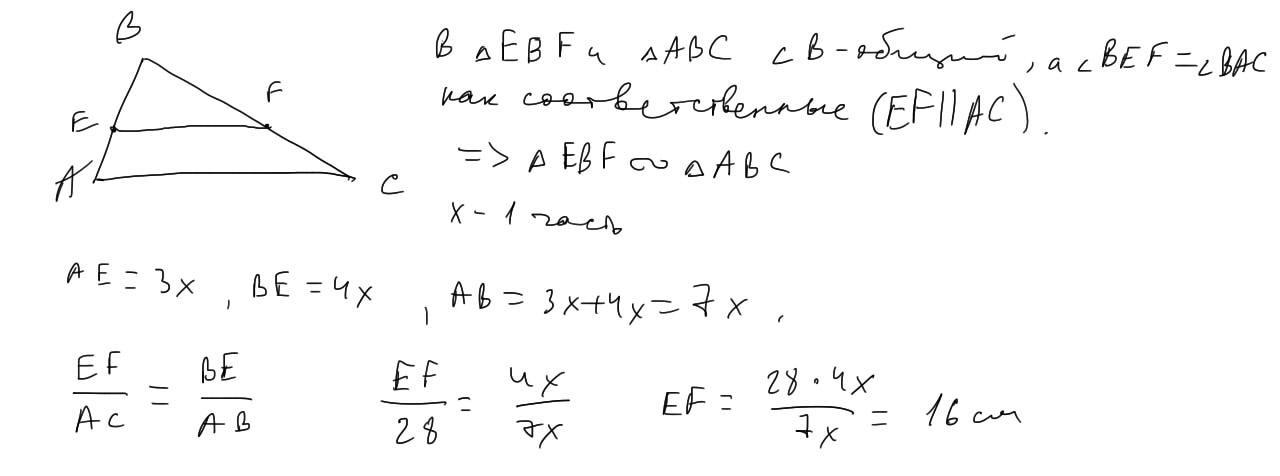 B
E
F
A
C
В △EBF и △ABC ∠B - общий, а ∠BEF = ∠BAC
как соответственные (EF || AC).
=> △EBF ∾ △ABC
x - 1 часть
AE = 3x, BE = 4x, AB = 3x+4x = 7x.
EF/AC = BE/AB EF/28 = 4x/7x EF = 28·4x/7x = 16 см